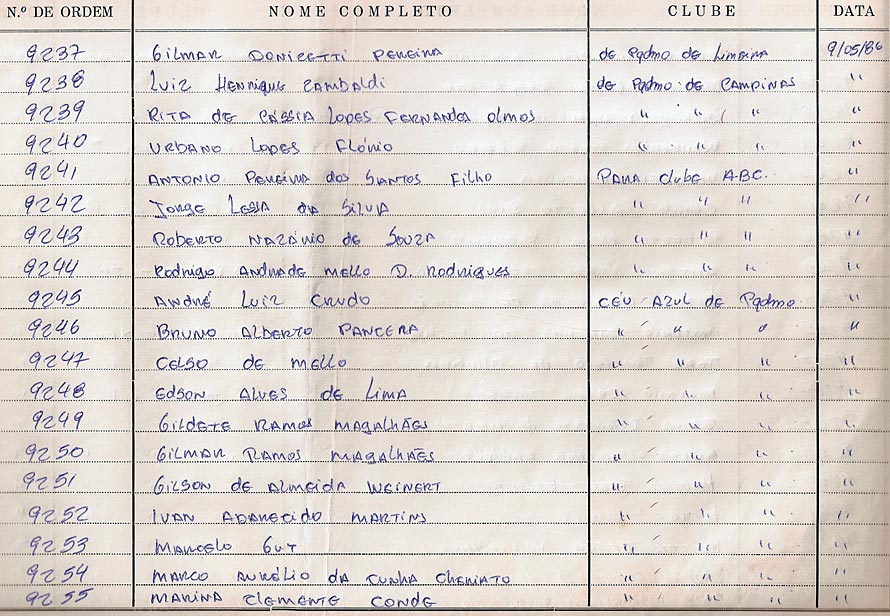 N.º DE ORDEM NOME COMPLETO CLUBE DATA
9237 Gilmar Donizetti Pereira de Pqdmo de Limeira 9/05/86
9238 Luiz Henrique Zambaldi de Pqdmo de Campinas "
9239 Rita de Cássia Lopes Fernandes Olmos " " " "
9240 Urbano Lopes Flório " " " "
9241 Antonio Pereira dos Santos Filho Para Clube ABC. "
9242 Jorge Lessa da Silva " " " "
9243 Roberto Nazário de Souza " " " "
9244 Rodrigo Andrade Mello D. Rodrigues " " " "
9245 André Luiz Crudo Céu Azul de Pqdmo "
9246 Bruno Alberto Pancera " " " "
9247 Celso de Mello " " " "
9248 Edson Alves de Lima " " " "
9249 Gildete Ramos Magalhães " " " "
9250 Gilmar Ramos Magalhães " " " "
9251 Gilson de Almeida Weinert " " " "
9252 Ivan Aparecido Martins " " " "
9253 Marcelo Gut " " " "
9254 Marco Aurélio da Cunha Cheriato " " " "
9255 Marina Clemente Conde " " " "